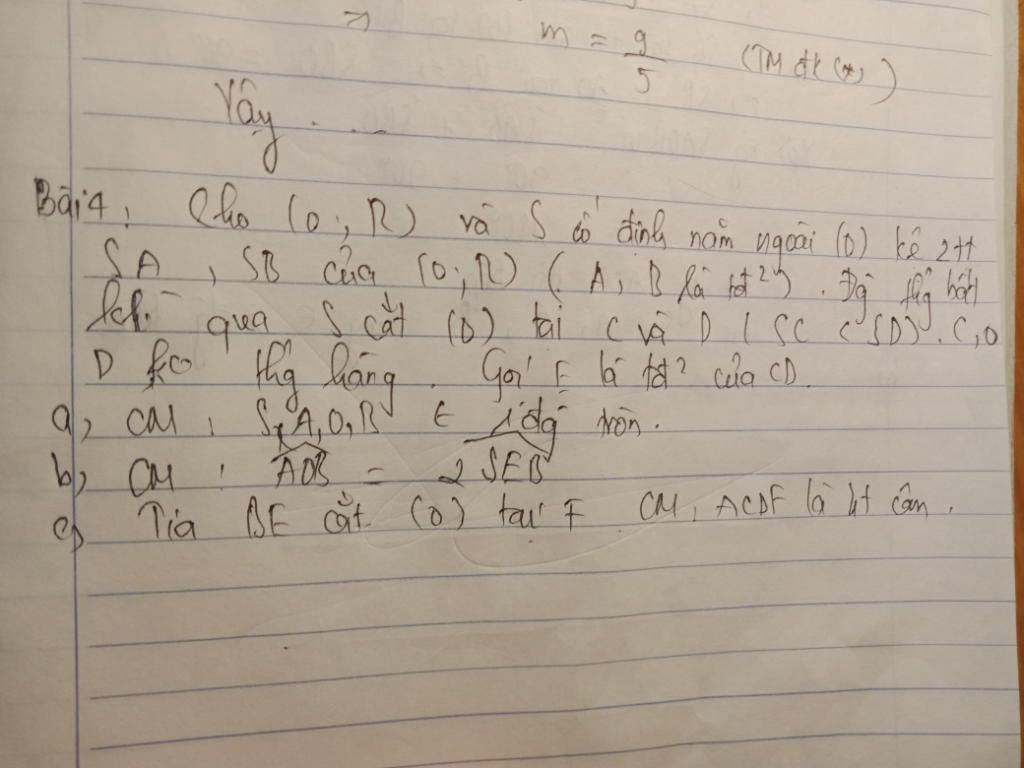 m = 9/5 (TM đk (*))
Vậy . . .
Bài 4, Cho (O; R) và S cố định nằm ngoài (O) kẻ 2 tt
SA, SB của (O; R) (A, B là tđ²). Đg thg bất
kì qua S cắt (O) tại C và D (SC < SD). C, O
D ko thg hàng. Gọi E là tđ² của CD.
a, CM: S, A, O, B ∈ 1 đg tròn.
b, CM: AOB = 2 SEB
c, Tia BE cắt (O) tại F CM, ACDF là ht cân.